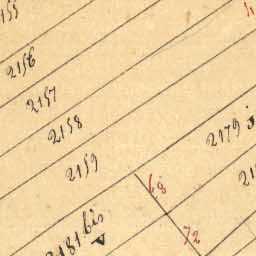 155
2156
2157
2158
2159
2179
68
72
2181 bis